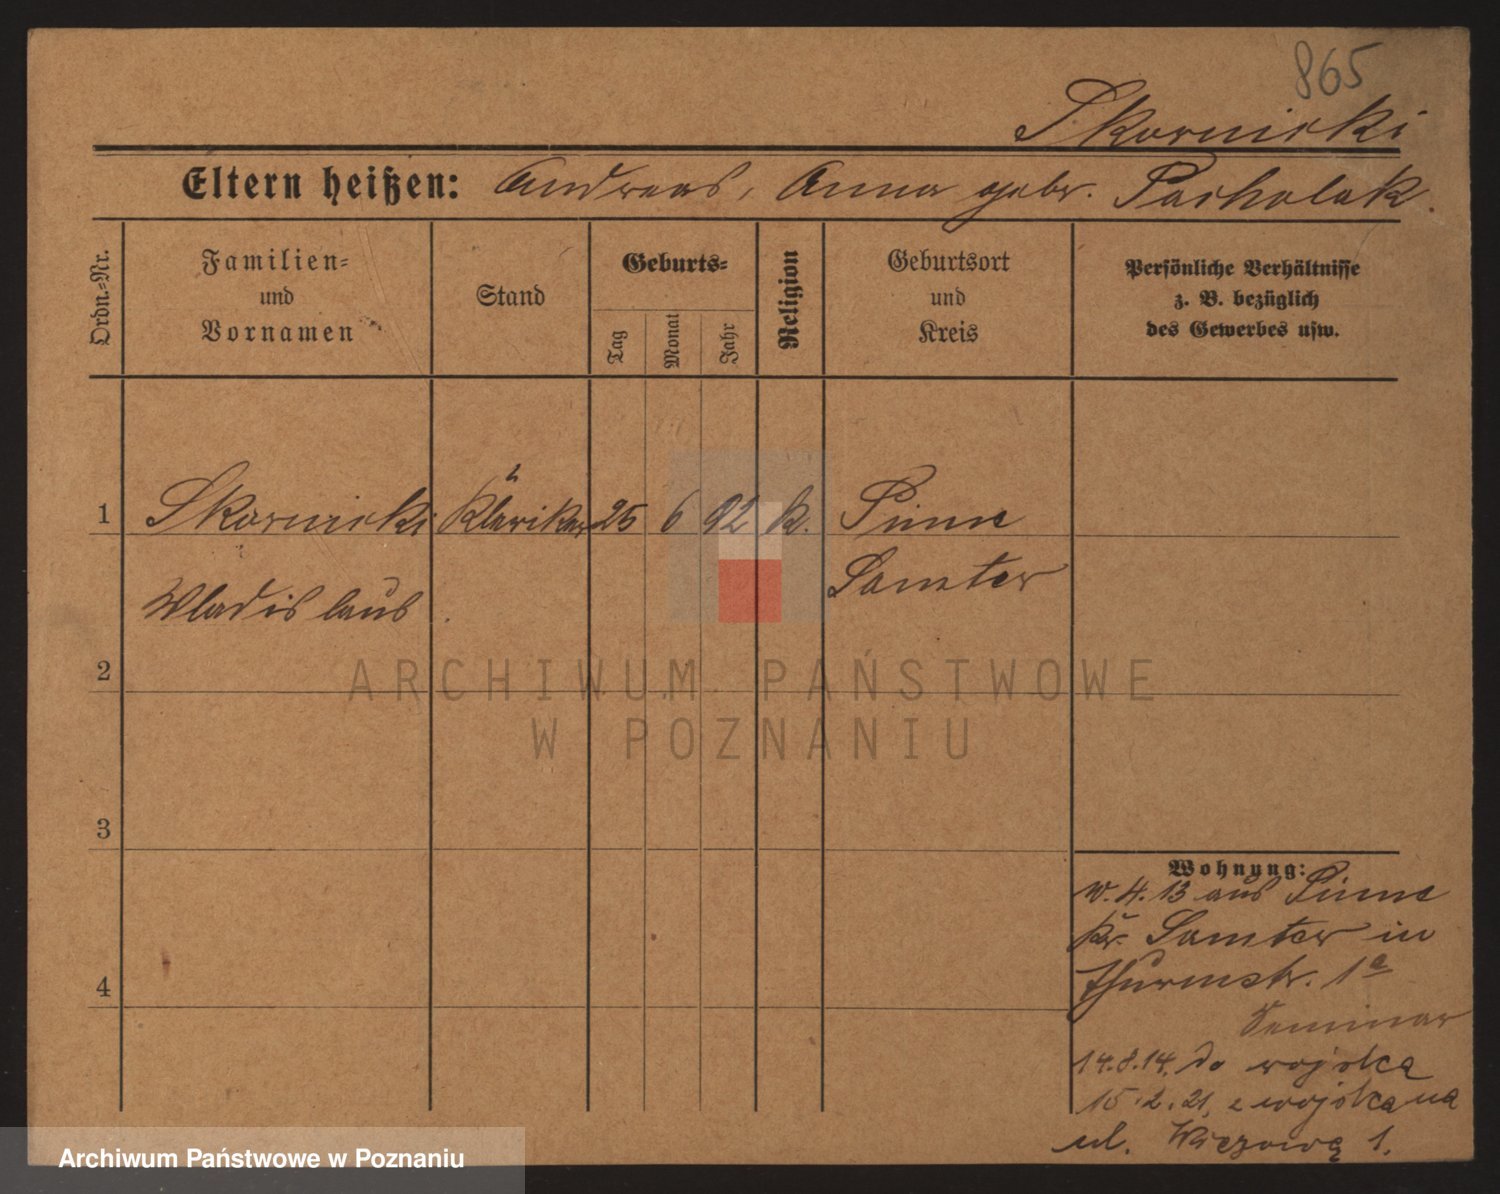 865
Skornicki
Eltern heißen: Andreas, Anna gebr. Pacholak.
Ordn.-Nr.
Familien-
und
Vornamen
Stand
Geburts-
Tag
Monat
Jahr
Religion
Geburtsort
und
Kreis
Persönliche Verhältnisse
z. B. bezüglich
des Gewerbes usw.
1 Skornicki Kleriker 25 6 92 k. Pinne
Samter
Wladislaus
2
3
4
Wohnung:
w. 4. 13 aus Pinne
Kr. Samter in
Thurmstr. 1a
Seminar
14.8.14. do wojska
15.2.21. z wojska na
ul. Wieżową 1.
ARCHIWUM PAŃSTWOWE
W POZNANIU
Archiwum Państwowe w Poznaniu